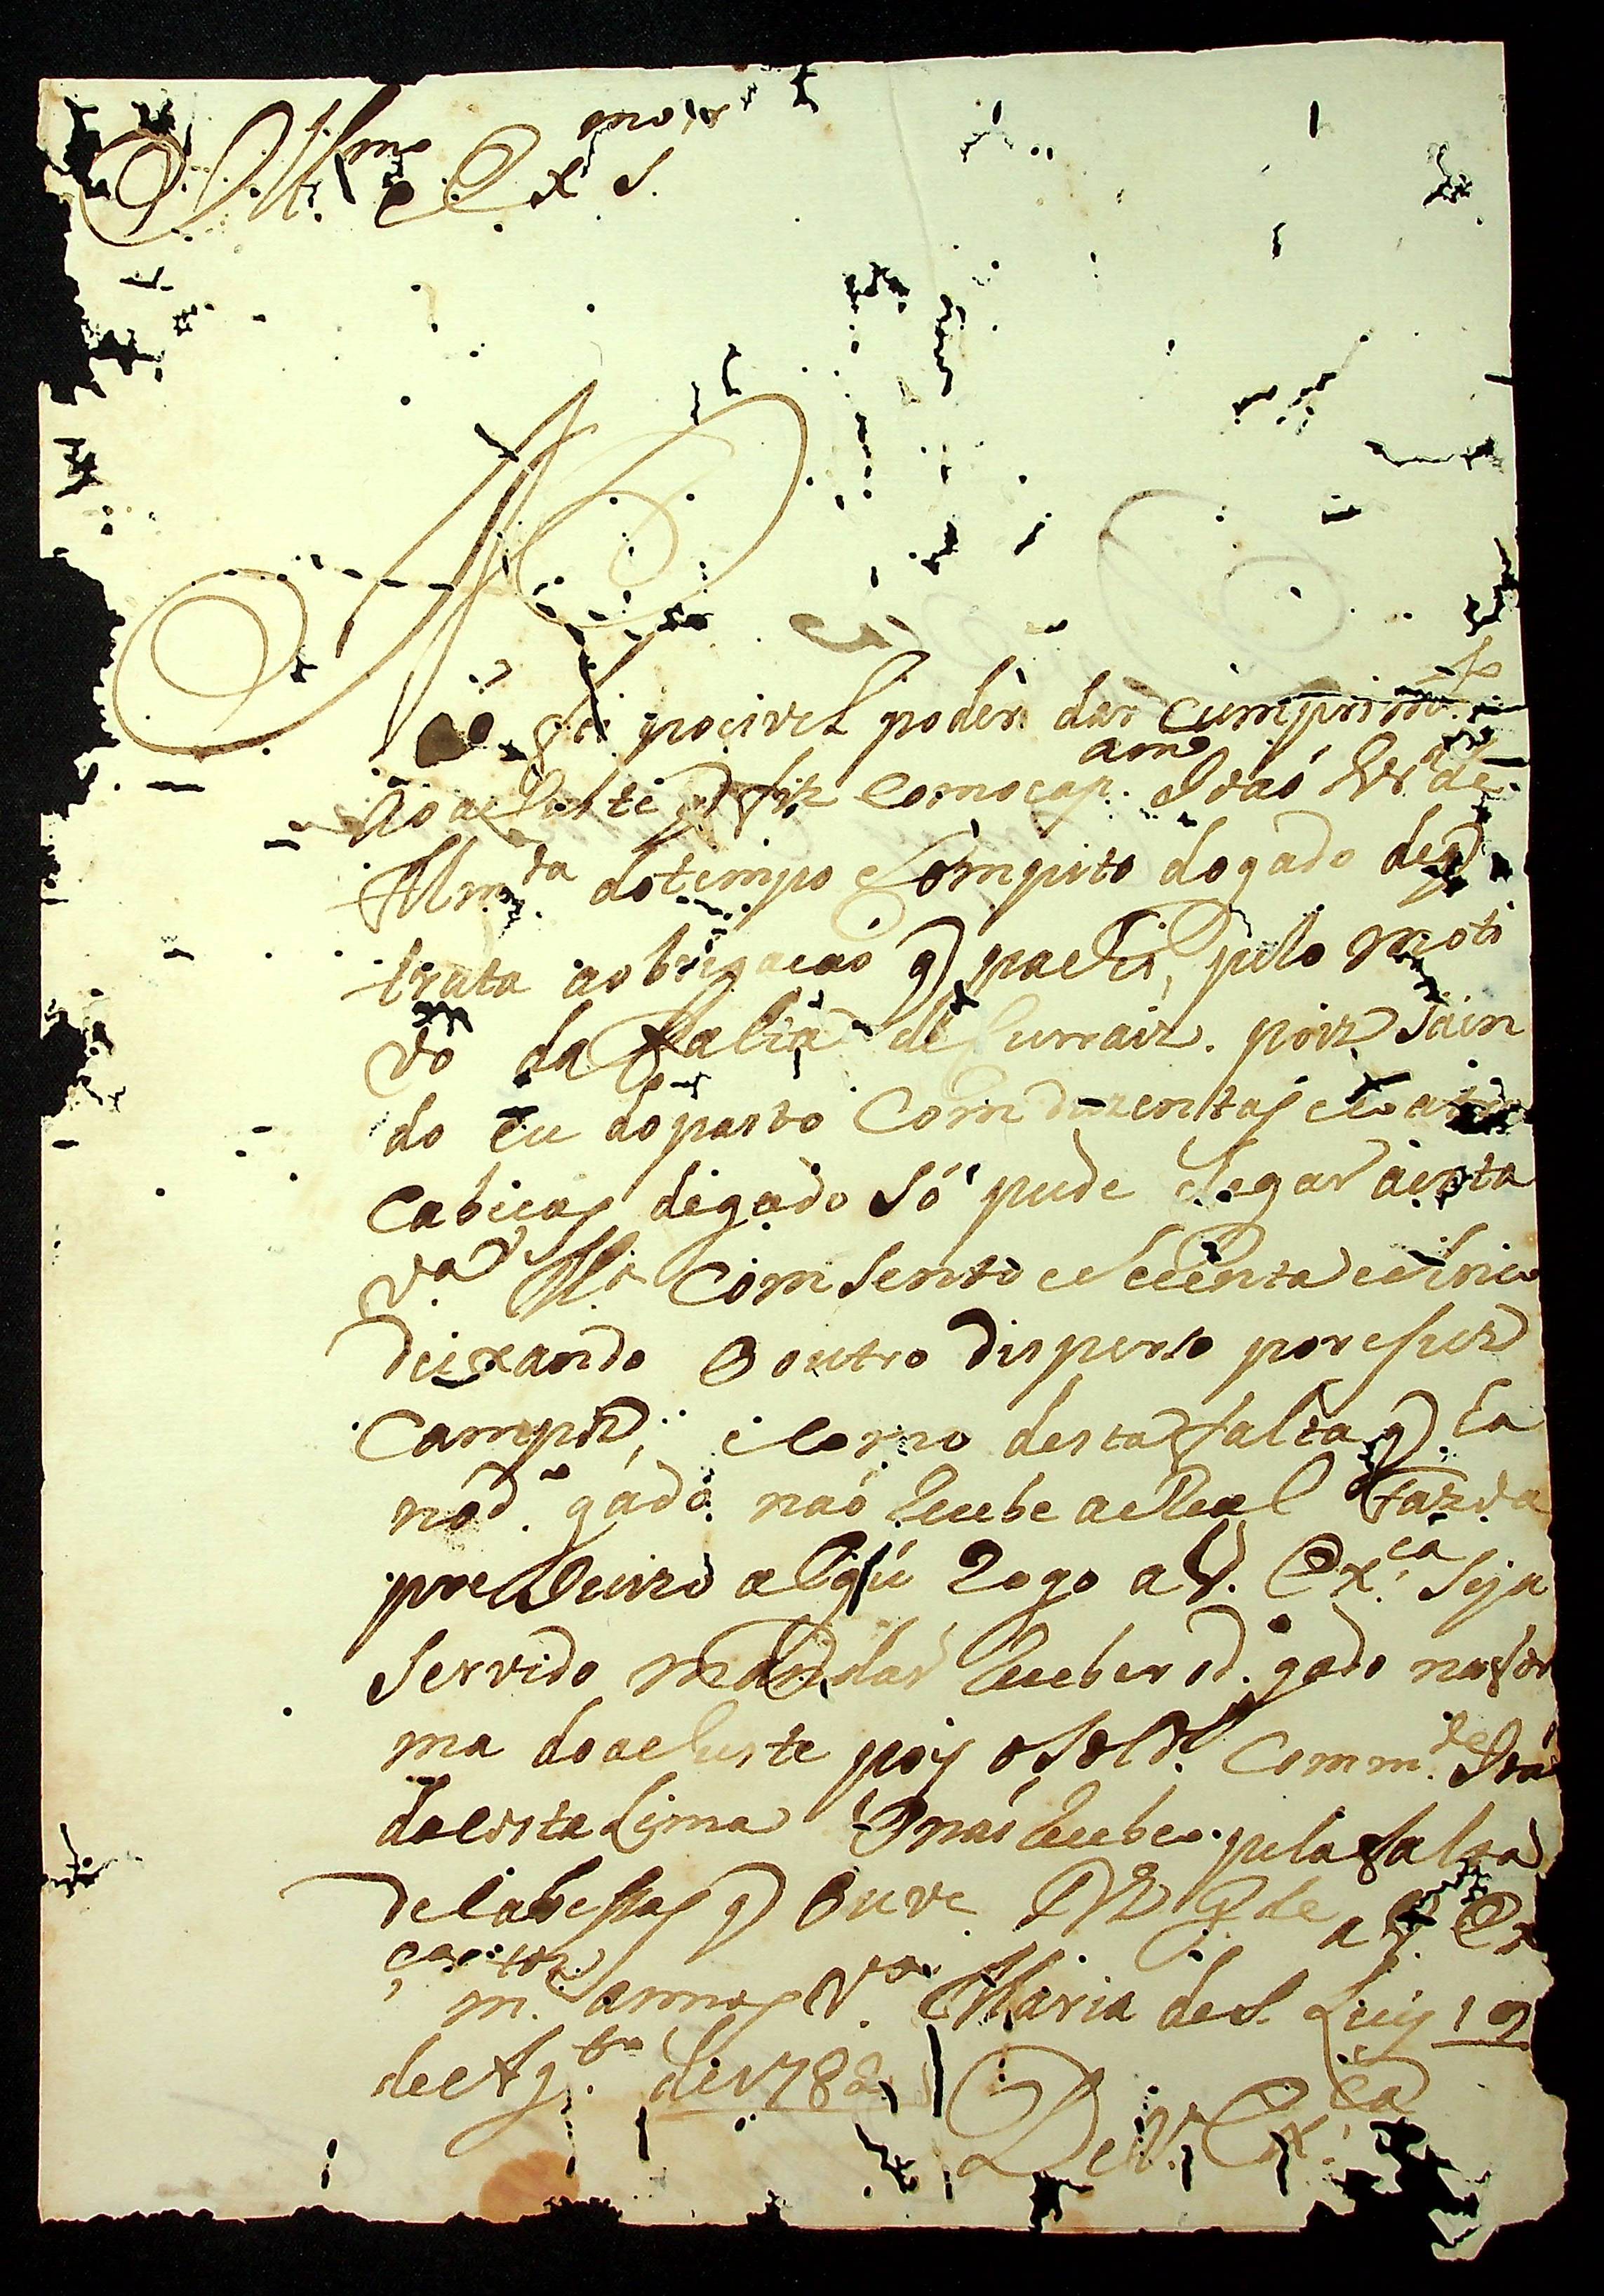 Illmo e Exmo S.
Nao foi pocivel poder dar cumprimto
no acluste q fiz com o cap.am Joaó Roiz de
Almda do tempo e Computo do gado de q
trata a obrigacaó q pacei, pelo moti
vo da falta de Curraiz. poiz Sain
do eu do pasto Com duzentas e coatro
cabicas de gado Só pude chegar a esta
Va Ma Com Sento e Secenta e Sinco
deixando O outro disperso por eses
Campoz, e Como desta falta q ta
no d.o gado naó Recebe a Real Fazda
preLuizo algú Rogo a V. Ex.ca Seja
Servido mandar Receber o d. gado na for
ma do acluste pois o Sold. Comm.de Joa
da Costa Lima O naó Recebeo pela falta
de Cabessas q Ouve Ds Gde a V. Ex
ca m.tos annos Va Maria de S. Luis 12
de Ag.to de 1782
De V. Ex.ca